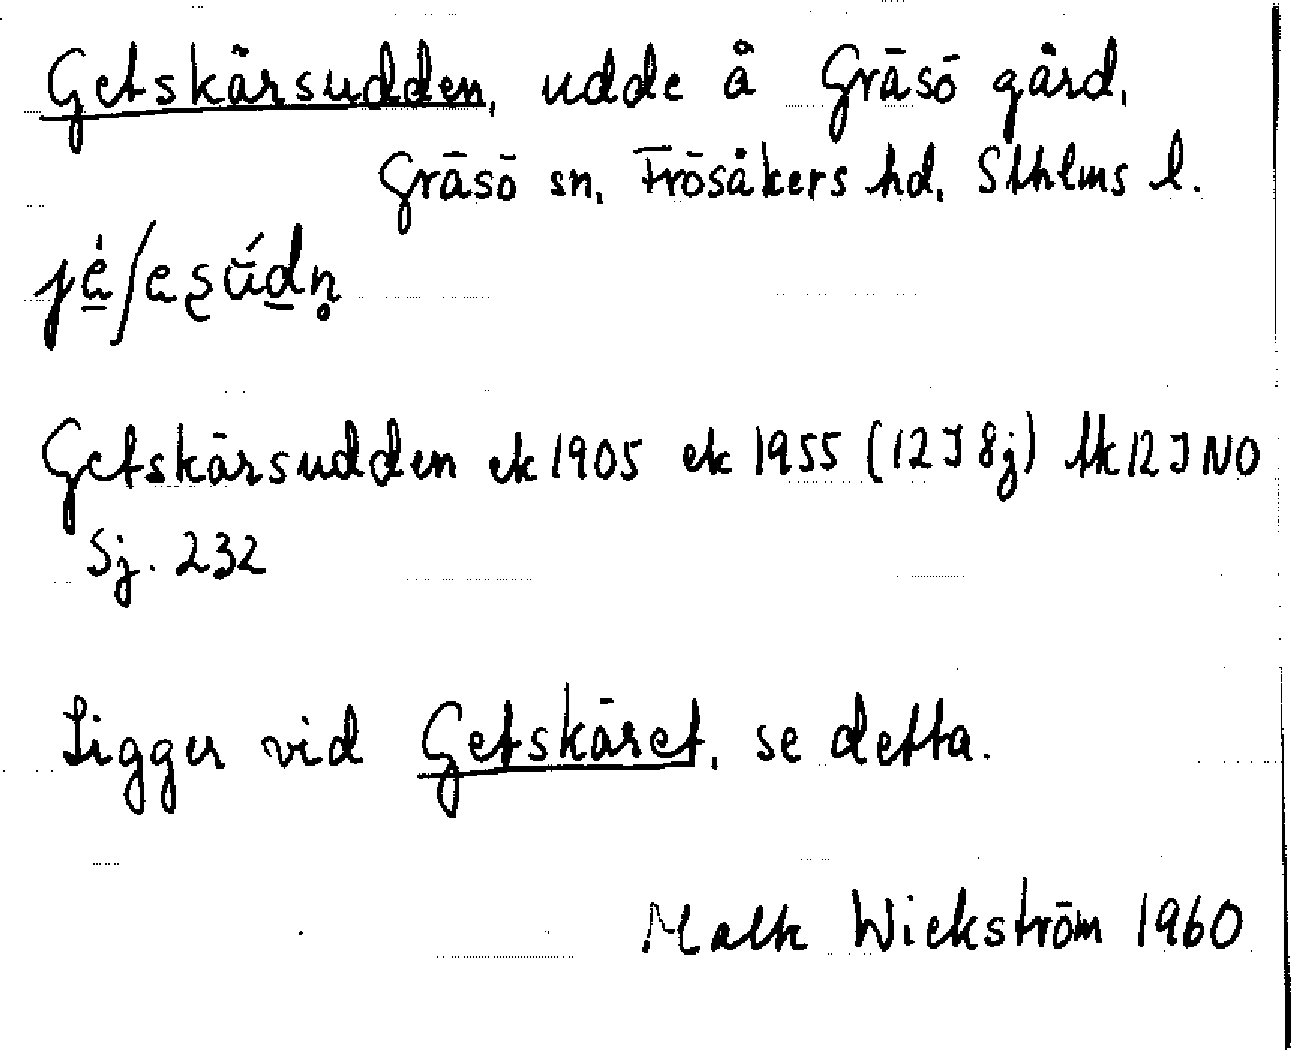 Getskärsudden, udde å Gräsö gård,
Gräsö sn, Frösåkers hd, Sthlms l.
Getskärsudden ek 1905 ek 1955 (12 I 8j) tk 12 I NO
Sj. 232
Ligger vid Getskäret, se detta.
Wickström 1960